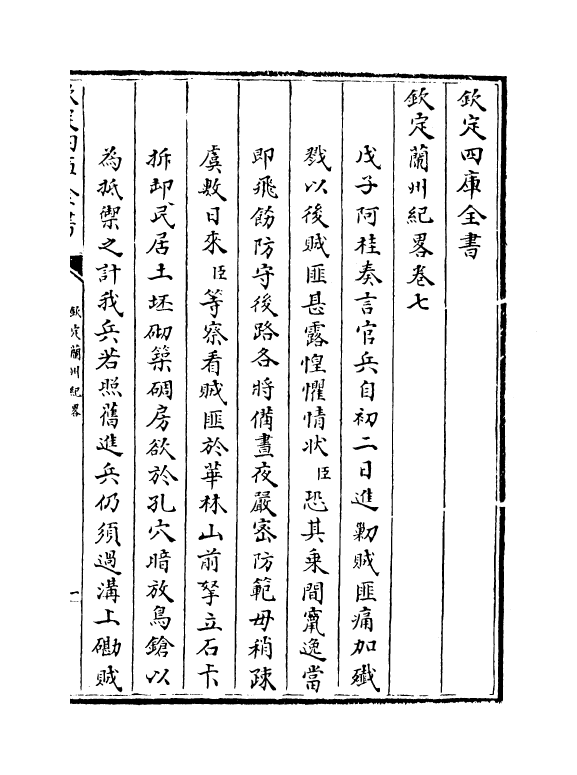 欽定四庫全書
欽定蘭州紀畧卷七
戊子阿桂奏言官兵自初二日進勦賊匪痛加殲
戮以後賊匪甚露惶懼情狀臣恐其乘間竄逸當
即飛飭防守後路各將備晝夜嚴密防範毋稍疎
虞數日來臣等察看賊匪於華林山前拏立石卡
拆却民居土坯砌築碉房欲於孔穴暗放鳥鎗以
為抵禦之計我兵若照舊進兵仍須過溝上磡賊
欽定四庫全書
欽定蘭州紀畧
一